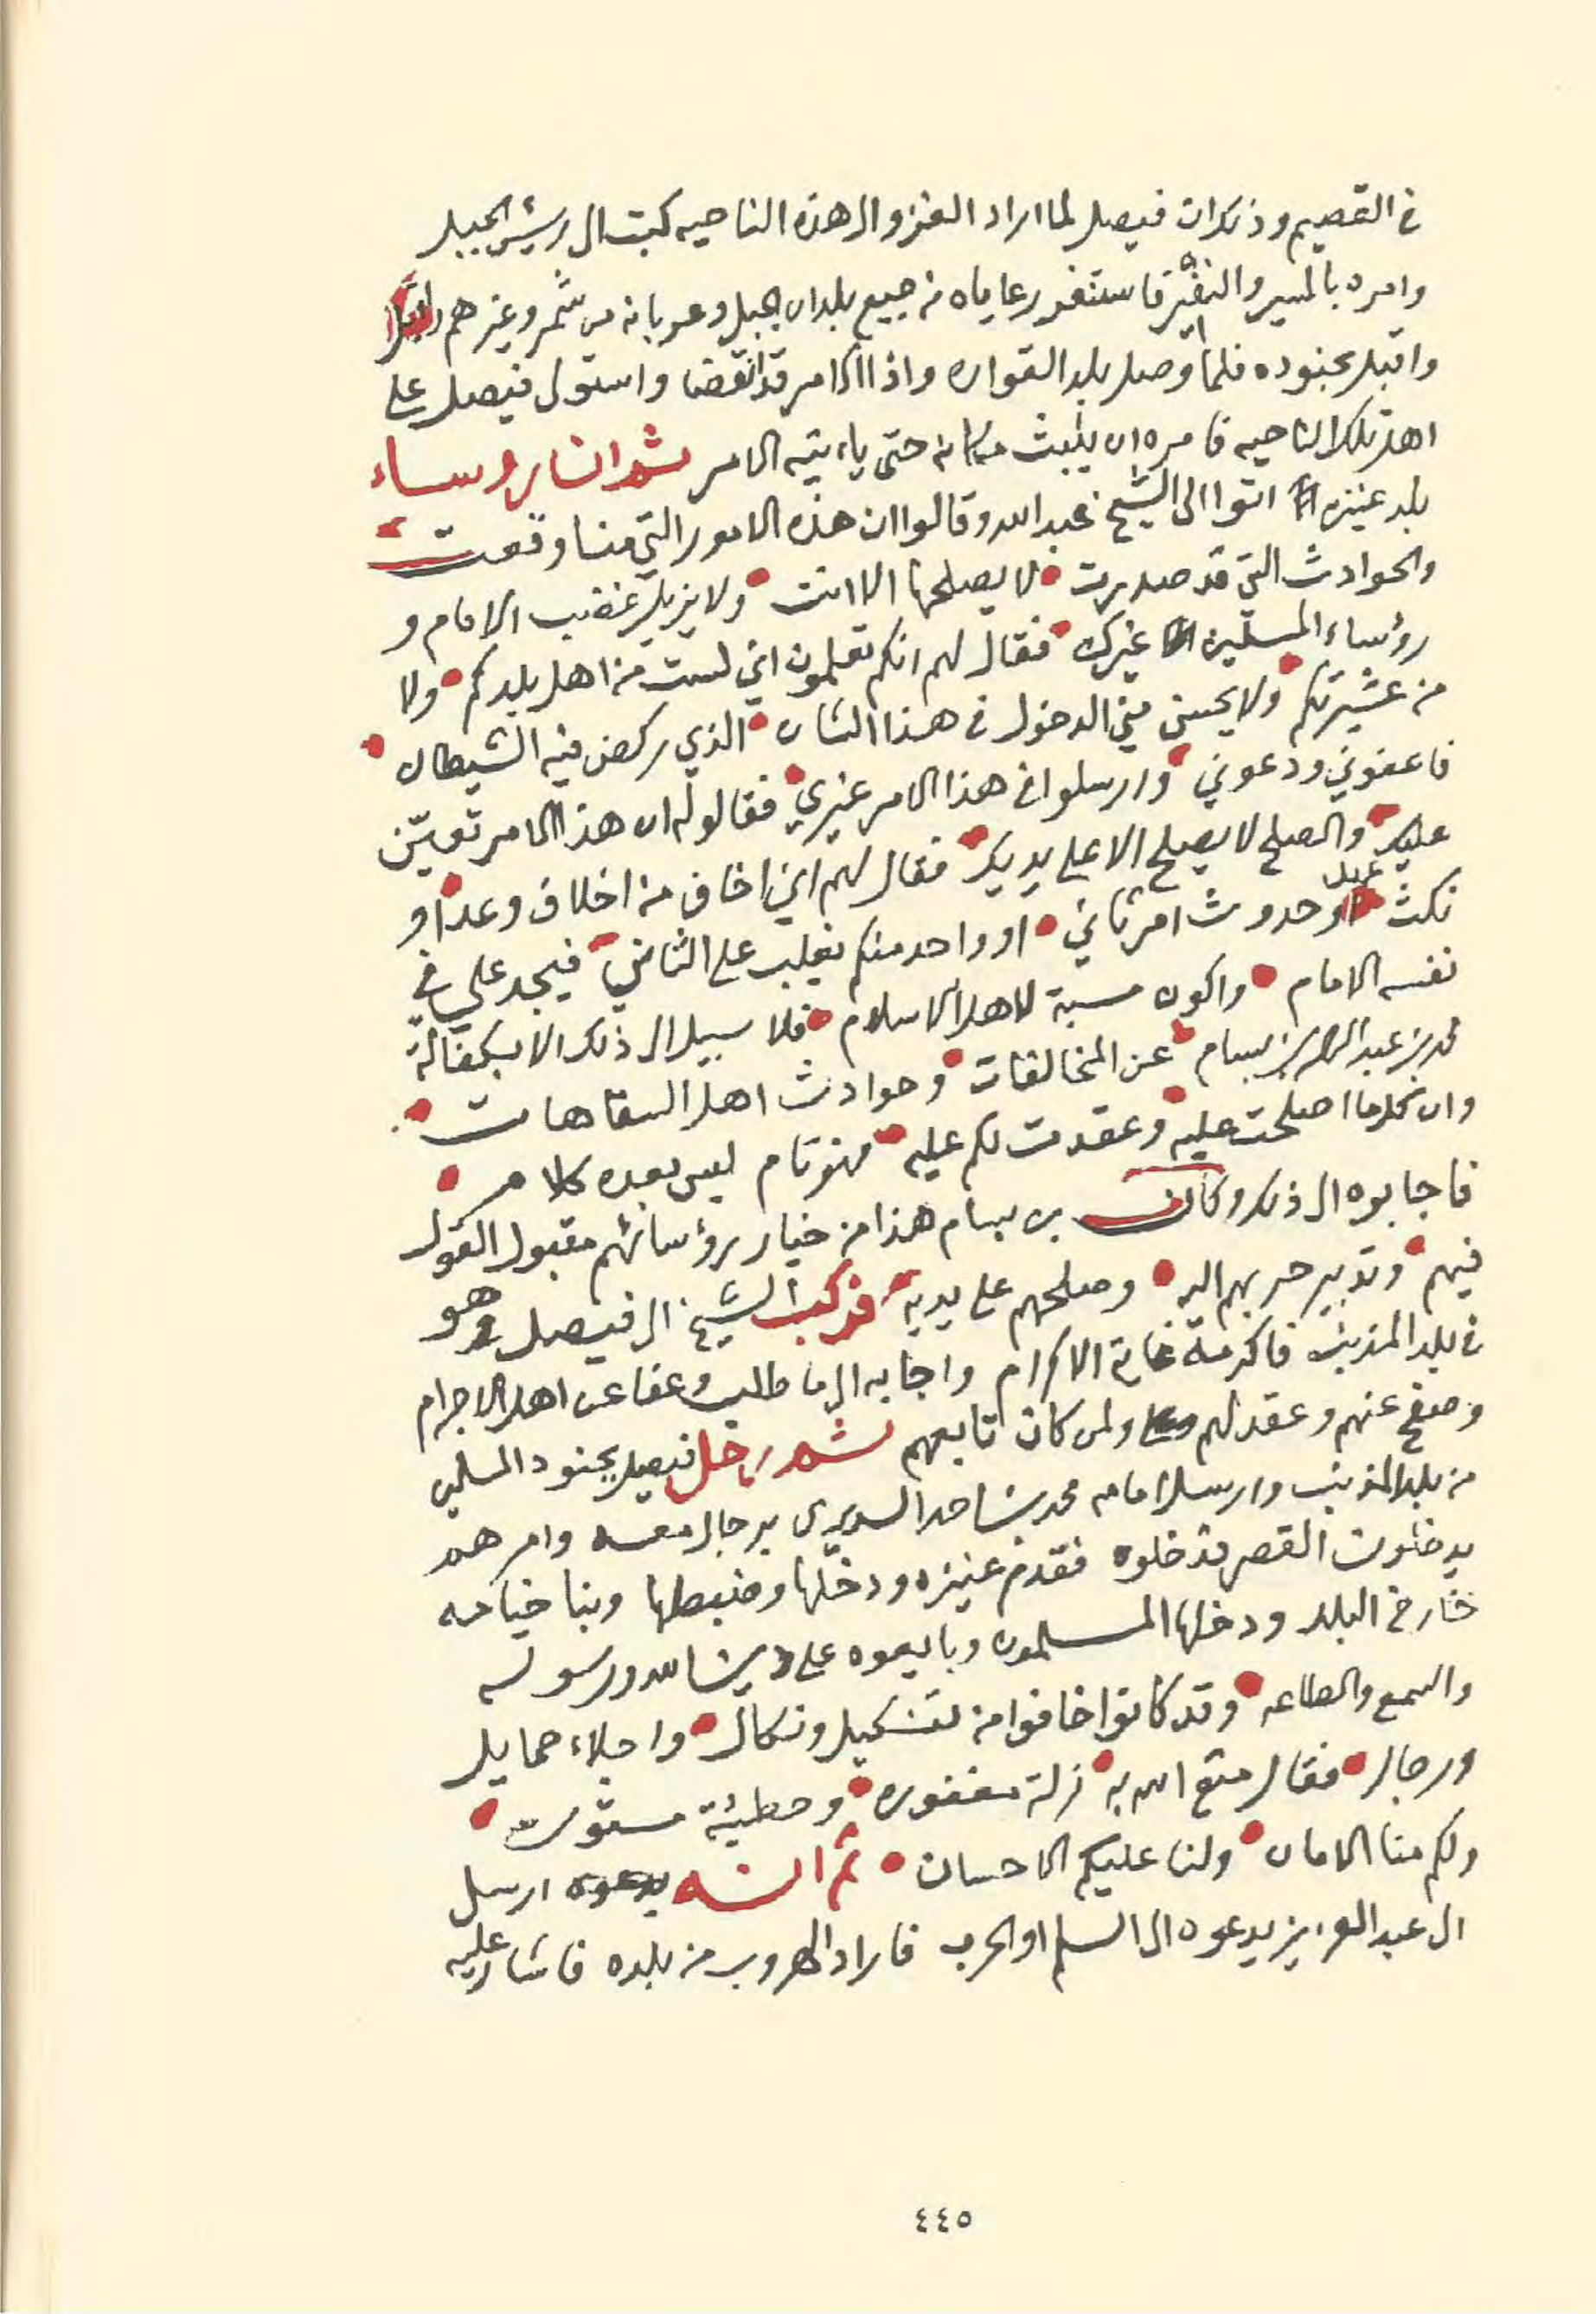 في القصيم وذكر ان فيصل لما اراد الغزو الى هذه الناحيه كتب الى رئيس الجبل
وامره بالمسير والنفير فاستنفر رعاياه من جميع بلدان الجبل وعربانه من شمر وغيرهم
واقبل بجنوده فلما وصل بلد القواره واذا الامر قد انقضا واستولى فيصل على
اهل تلك الناحيه فامره ان يلبث مكانه حتى ياءتيه الامر ثم ان رؤساء
بلد عنيزه اتوا الى الشيخ عبد الله وقالوا ان هذه الامور التي منا وقعت
والحوادث التي قد صدرت لا يصلحها الا انت ولا يزيل غضب الامام و
رؤساء المسلمين غيرك فقال لهم انكم تعلمون اني لست من اهل بلدكم ولا
من عشيرتكم ولا يحسن مني الدخول في هذا الشان الذي ركض فيه الشيطان
فاعفوني ودعوني وارسلوا في هذا الامر غيري فقالوا له ان هذا الامر تعيّن
عليك والصلح لا يصلح الا على يديك فقال لهم اني اخاف من اخلاف وعد او
نكث او حدوث امر ثاني او واحد منكم يغلب على الثاني فيجد علي في
نفسه الامام واكون مسبة لاهل الاسلام فلا سبيل الى ذلك الا بكفالة
محمد بن عبد الرحمن بن بسام عن المخالفات وحوادث اهل السفاهات
وان كلما اصلحت عليه وعقدت لكم عليه فهو تام ليس بعده كلام
فاجابوه الى ذلك وكان بن بسام هذا من خيار رؤسائهم مقبول القول
فيهم وتدبير حربهم اليه وصلحهم على يديه فركب الشيخ الى فيصل وهو
في بلد المذنب فاكرمه غاية الاكرام واجابه الى ما طلب وعفا عن اهل الاجرام
وصفح عنهم وعقد لهم ولمن كان تابعهم ثم رحل فيصل بجنود المسلمين
من بلد المذنب وارسل امامه محمد بن احمد السديري برجال معه وامرهم
يدخلون القصر فدخلوه فقدم عنيزه ودخلها وضبطها وبنا خيامه
خارج البلد ودخلها المسلمون وبايعوه على دين الله ورسوله
والسمع والطاعه وقد كانوا خافوا من تنكيل ونكال واجلاء حمايل
ورجال فقال متع الله به زلة مغفوره وخطيئة مستوره
ولكم منا الامان ولنا عليكم الاحسان ثم انه يدعوه ارسل
الى عبد العزيز يدعوه الى السلم او الحرب فاراد الهروب من بلده فاشار عليه
٤٤٥